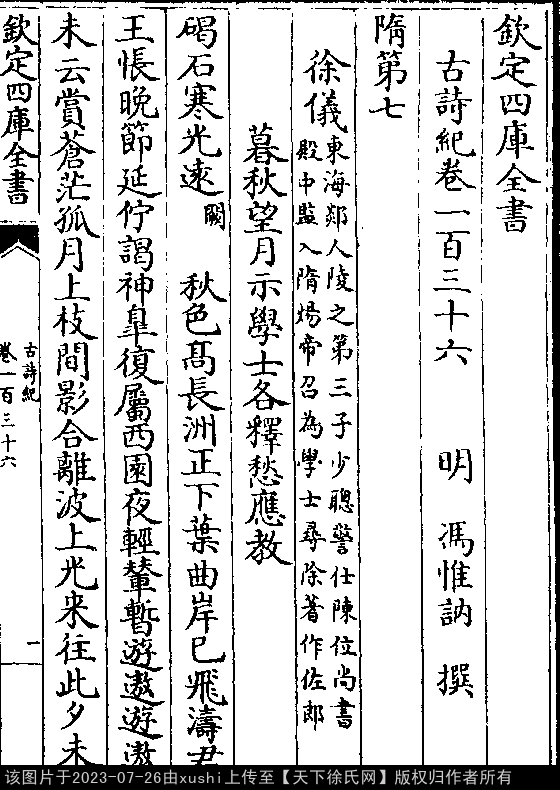 欽定四庫全書
古詩紀卷一百三十六　明　馮惟訥　撰
隋第七
徐儀東海郯人陵之第三子少聰警仕陳位尚書
殿中監入隋煬帝召為學士尋除著作佐郎
暮秋望月示學士各釋愁應教
碣石寒光速闕　秋色髙長洲正下葉曲岸已飛濤君
王悵晩節延佇謁神臯復屬西園夜輕輦暫遊遨遊遨
未云賞蒼茫孤月上枝間影合離波上光来往此夕未
欽定四庫全書
古詩紀
卷一百三十六
一
该图片于2023-07-26由xushi上传至【天下徐氏网】版权归作者所有